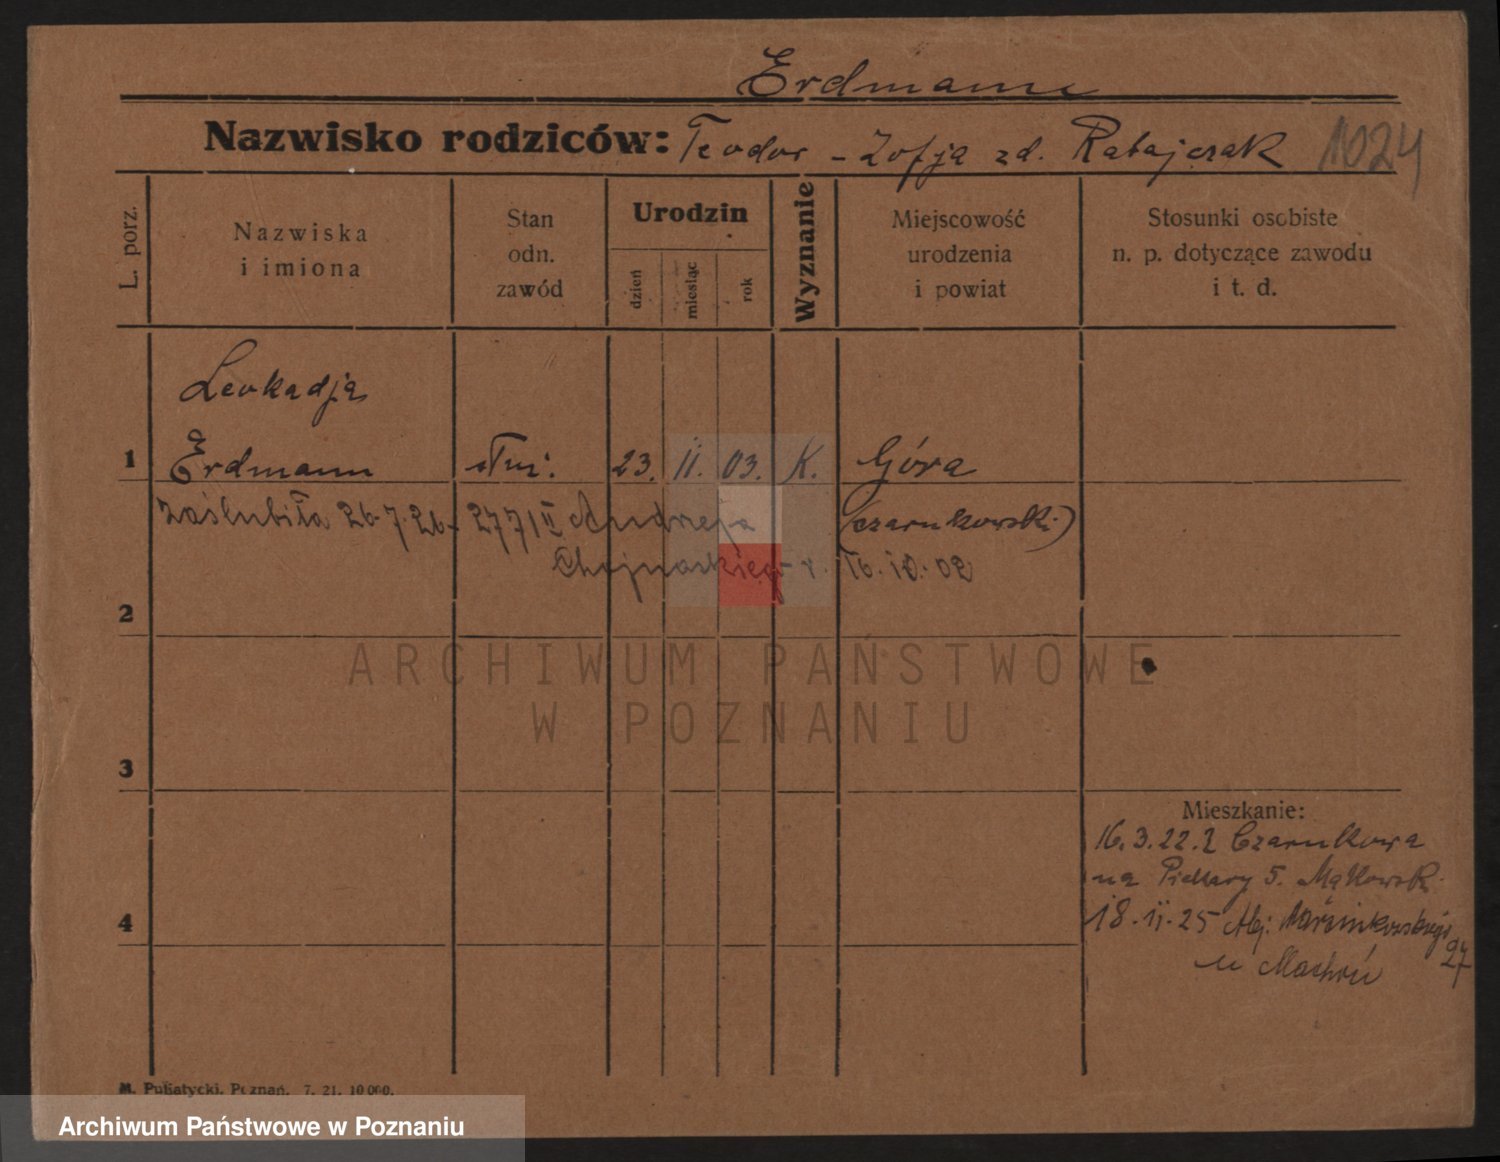 Erdmann
Nazwisko rodziców: Teodor - Zofja zd. Ratajczak 1024
L. porz.
Nazwiska
i imiona
Stan
odn.
zawód
Urodzin
dzień
miesiąc
rok
Wyznanie
Miejscowość
urodzenia
i powiat
Stosunki osobiste
n. p. dotyczące zawodu
i t. d.
Leokadja
1 Erdmann 23. 11. 03. K. Góra
zaślubiła 26.7.26 - 2771 II Andrzeja (czarnkowski)
Chojnackiego r. 16.10.02
2
ARCHIWUM PAŃSTWOWE
W POZNANIU
3
Mieszkanie:
16.3.22. z Czarnkowa
na Piekary 5.
4
18.11.25 Marcinkowskiego 27
u
M. Putiatycki, Poznań. 7. 21. 10 000.
Archiwum Państwowe w Poznaniu